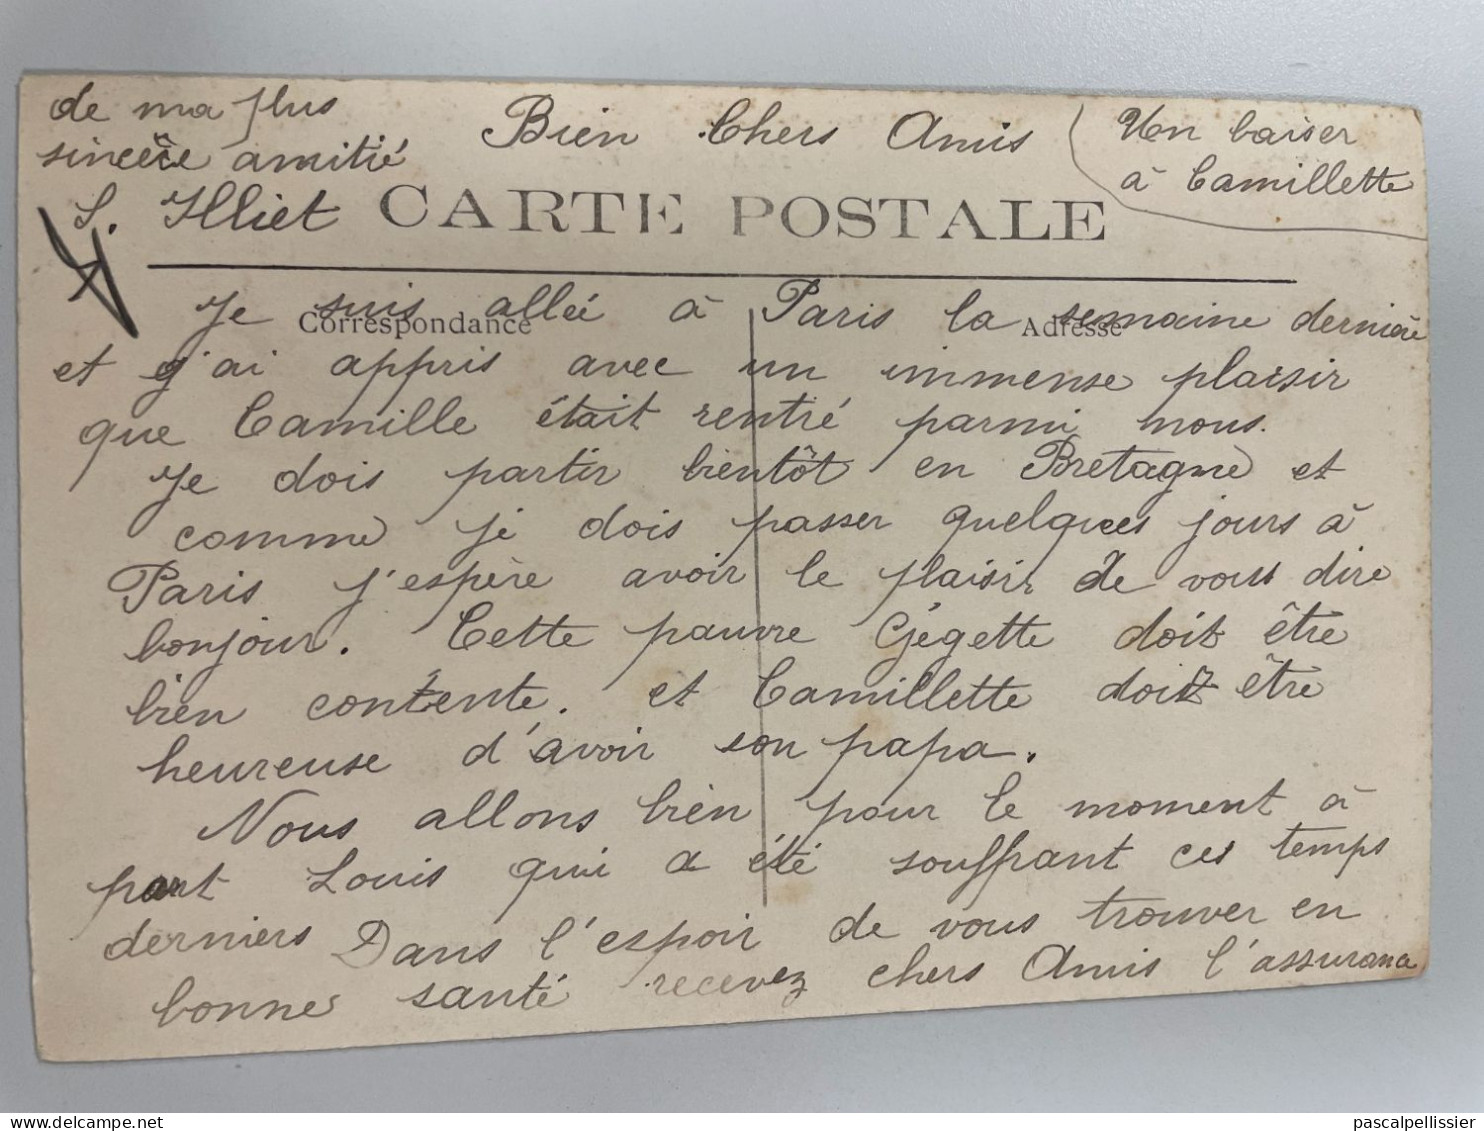 de ma plus
sincère amitié
Bien Chers Amis
Un baiser
à Camillette
CARTE POSTALE
Correspondance
Adresse
Je suis allée à Paris la semaine dernière
et j'ai appris avec un immense plaisir
que Camille était rentré parmi nous.
Je dois partir bientôt en Bretagne et
comme je dois passer quelques jours à
Paris j'espère avoir le plaisir de vous dire
bonjour. Cette pauvre Gégette doit être
bien contente. et Camillette doit être
heureuse d'avoir son papa.
Nous allons bien pour le moment à
part Louis qui a été souffrant ces temps
derniers Dans l'espoir de vous trouver en
bonne santé recevez chers Amis l'assurance
pascalpellissier